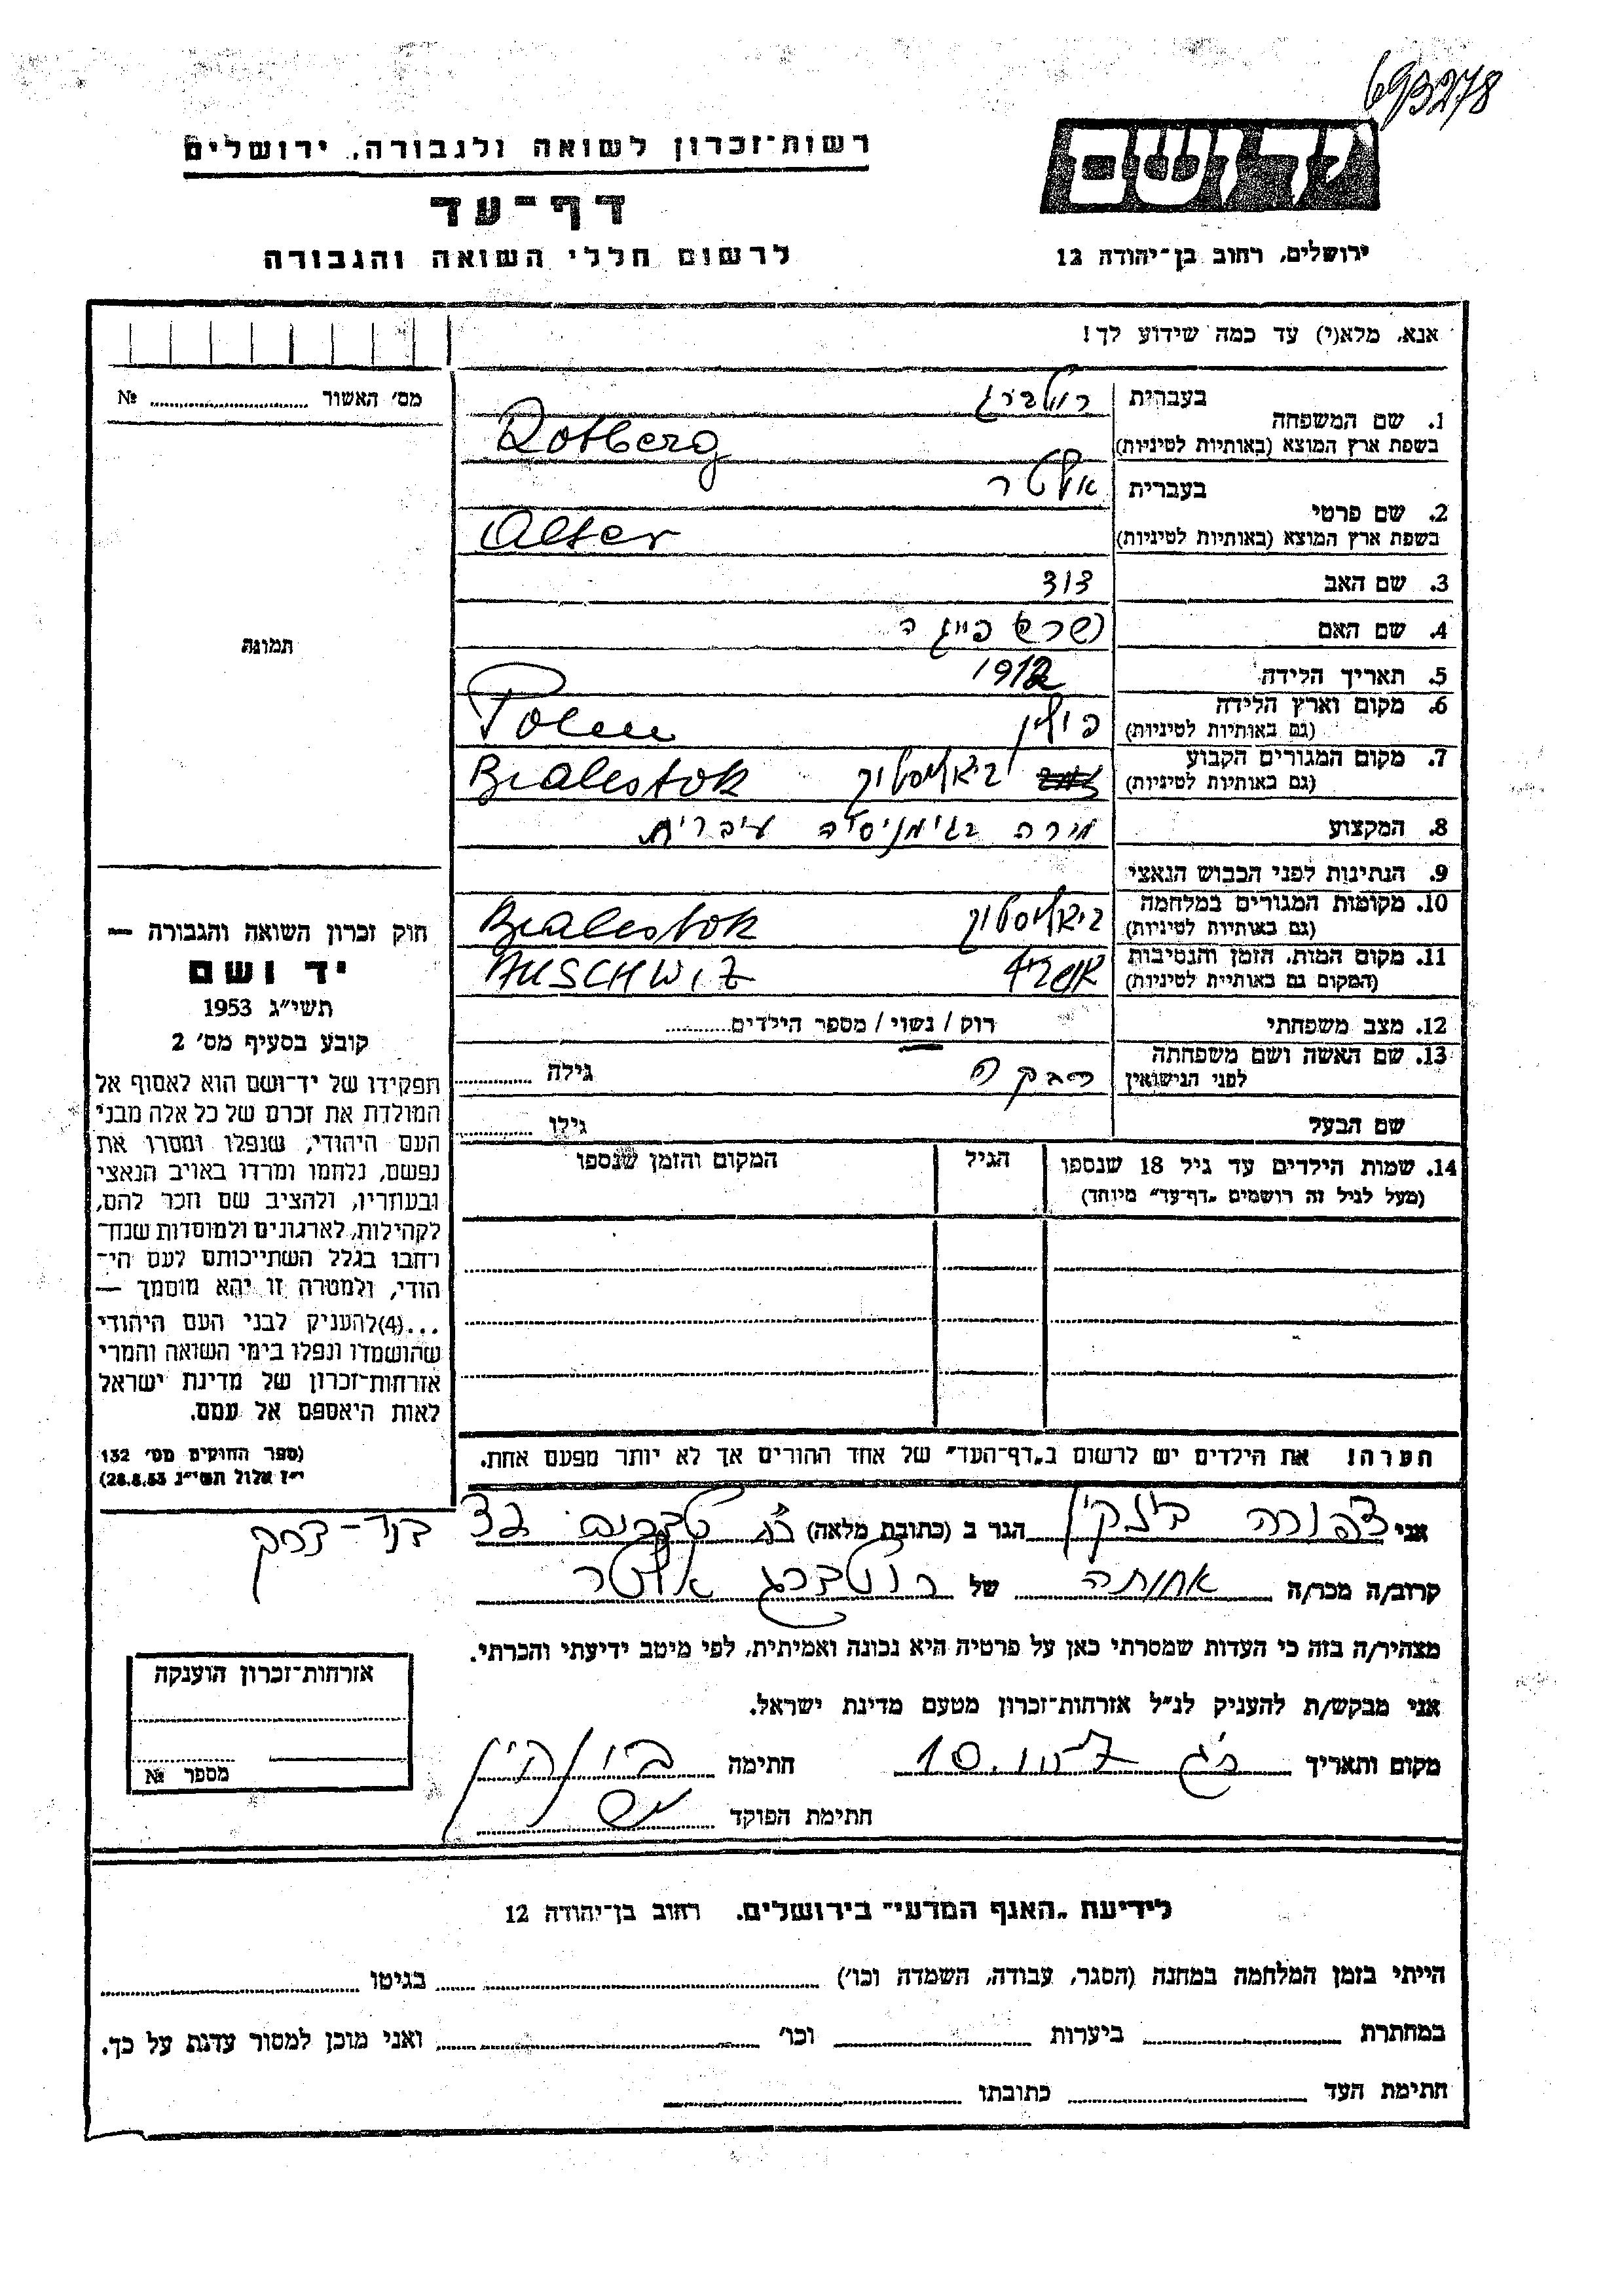 693278
רשות־זכרון לשואה ולגבורה, ירושלים
יד ושם
דף־עד
לרשום חללי השואה והגבורה
ירושלים, רחוב בן־יהודה 12
אנא, מלא(י) עד כמה שידוע לך!
מס׳ האשור № 
1. שם המשפחה בעברית רוטברג
בשפת ארץ המוצא (באותיות לטיניות) Rotberg
2. שם פרטי בעברית אלטר
בשפת ארץ המוצא (באותיות לטיניות) Alter
3. שם האב דוד
4. שם האם (שרה) פייגה
תמונה
5. תאריך הלידה 1912
6. מקום וארץ הלידה (גם באותיות לטיניות) פולין Polen
7. מקום המגורים הקבוע (גם באותיות לטיניות) ביאליסטוק Bialestok
8. המקצוע מורה בגימנסיה עיברית
9. הנתינות לפני הכבוש הנאצי
10. מקומות המגורים במלחמה (גם באותיות לטיניות) ביאליסטוק Bialestok
11. מקום המות, הזמן והנסיבות (המקום גם באותיות לטיניות) AUSCHWIZ
12. מצב משפחתי רוק / נשוי / מספר הילדים
13. שם האשה ושם משפחתה לפני הנישואין רבקה גילה
שם הבעל גילו
14. שמות הילדים עד גיל 18 שנספו הגיל המקום והזמן שנספו
(מעל לגיל זה רושמים „דף־עד״ מיוחד)
חוק זכרון השואה והגבורה —
יד ושם
תשי״ג 1953
קובע בסעיף מס׳ 2
תפקידו של יד־ושם הוא לאסוף אל
המולדת את זכרם של כל אלה מבני
העם היהודי, שנפלו ומסרו את
נפשם, נלחמו ומרדו באויב הנאצי
ובעוזריו, ולהציב שם וזכר להם,
לקהילות, לארגונים ולמוסדות שנח־
רחבו בגלל השתייכותם לעם הי־
הודי, ולמטרה זו יהא מוסמך —
...(4)להעניק לבני העם היהודי
שהושמדו ונפלו בימי השואה והמרי
אזרחות־זכרון של מדינת ישראל
לאות היאספם אל עמם.
(ספר החוקים מס׳ 132
י״ז אלול תשי״ג 28.8.53)
הערה! את הילדים יש לרשום ב„דף־העד״ של אחד ההורים אך לא יותר מפעם אחת.
אני צפורה הגר ב (כתובת מלאה)
קרוב/ה מכר/ה אחותה של רוטברג אלטר
מצהיר/ה בזה כי העדות שמסרתי כאן על פרטיה היא נכונה ואמיתית, לפי מיטב ידיעתי והכרתי.
אני מבקש/ת להעניק לנ״ל אזרחות־זכרון מטעם מדינת ישראל.
מקום ותאריך חתימה
חתימת הפוקד
אזרחות־זכרון הוענקה
מספר №
לידיעת „האגף המדעי״ בירושלים, רחוב בן־יהודה 12
הייתי בזמן המלחמה במחנה (הסגר, עבודה, השמדה וכו׳) בגיטו
במחתרת ביערות וכו׳ ואני מוכן למסור עדות על כך.
חתימת העד כתובתו